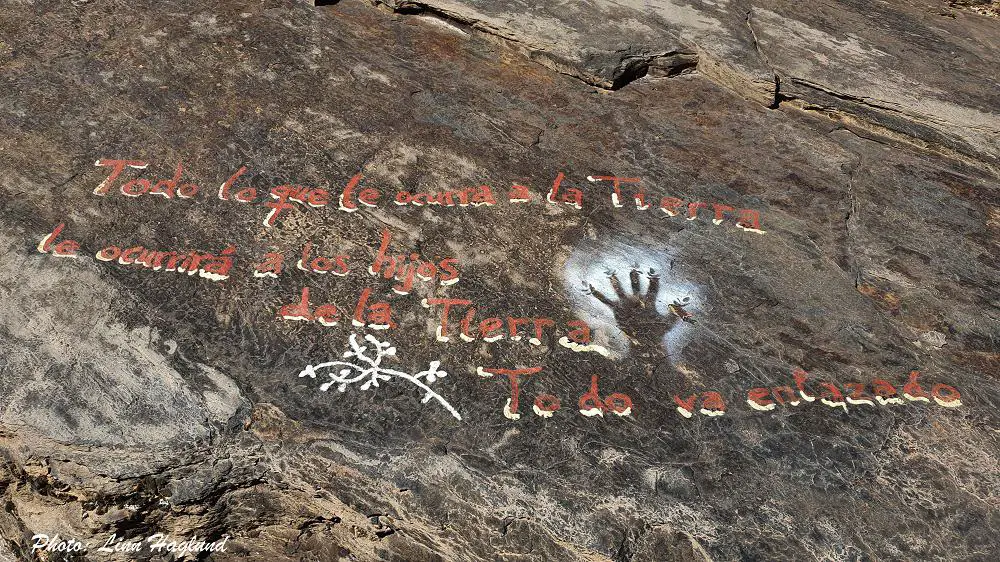 Todo lo que le ocurra a la Tierra
le ocurrirá a los hijos
de la Tierra
Todo va enlazado
Photo: Linn Haglund